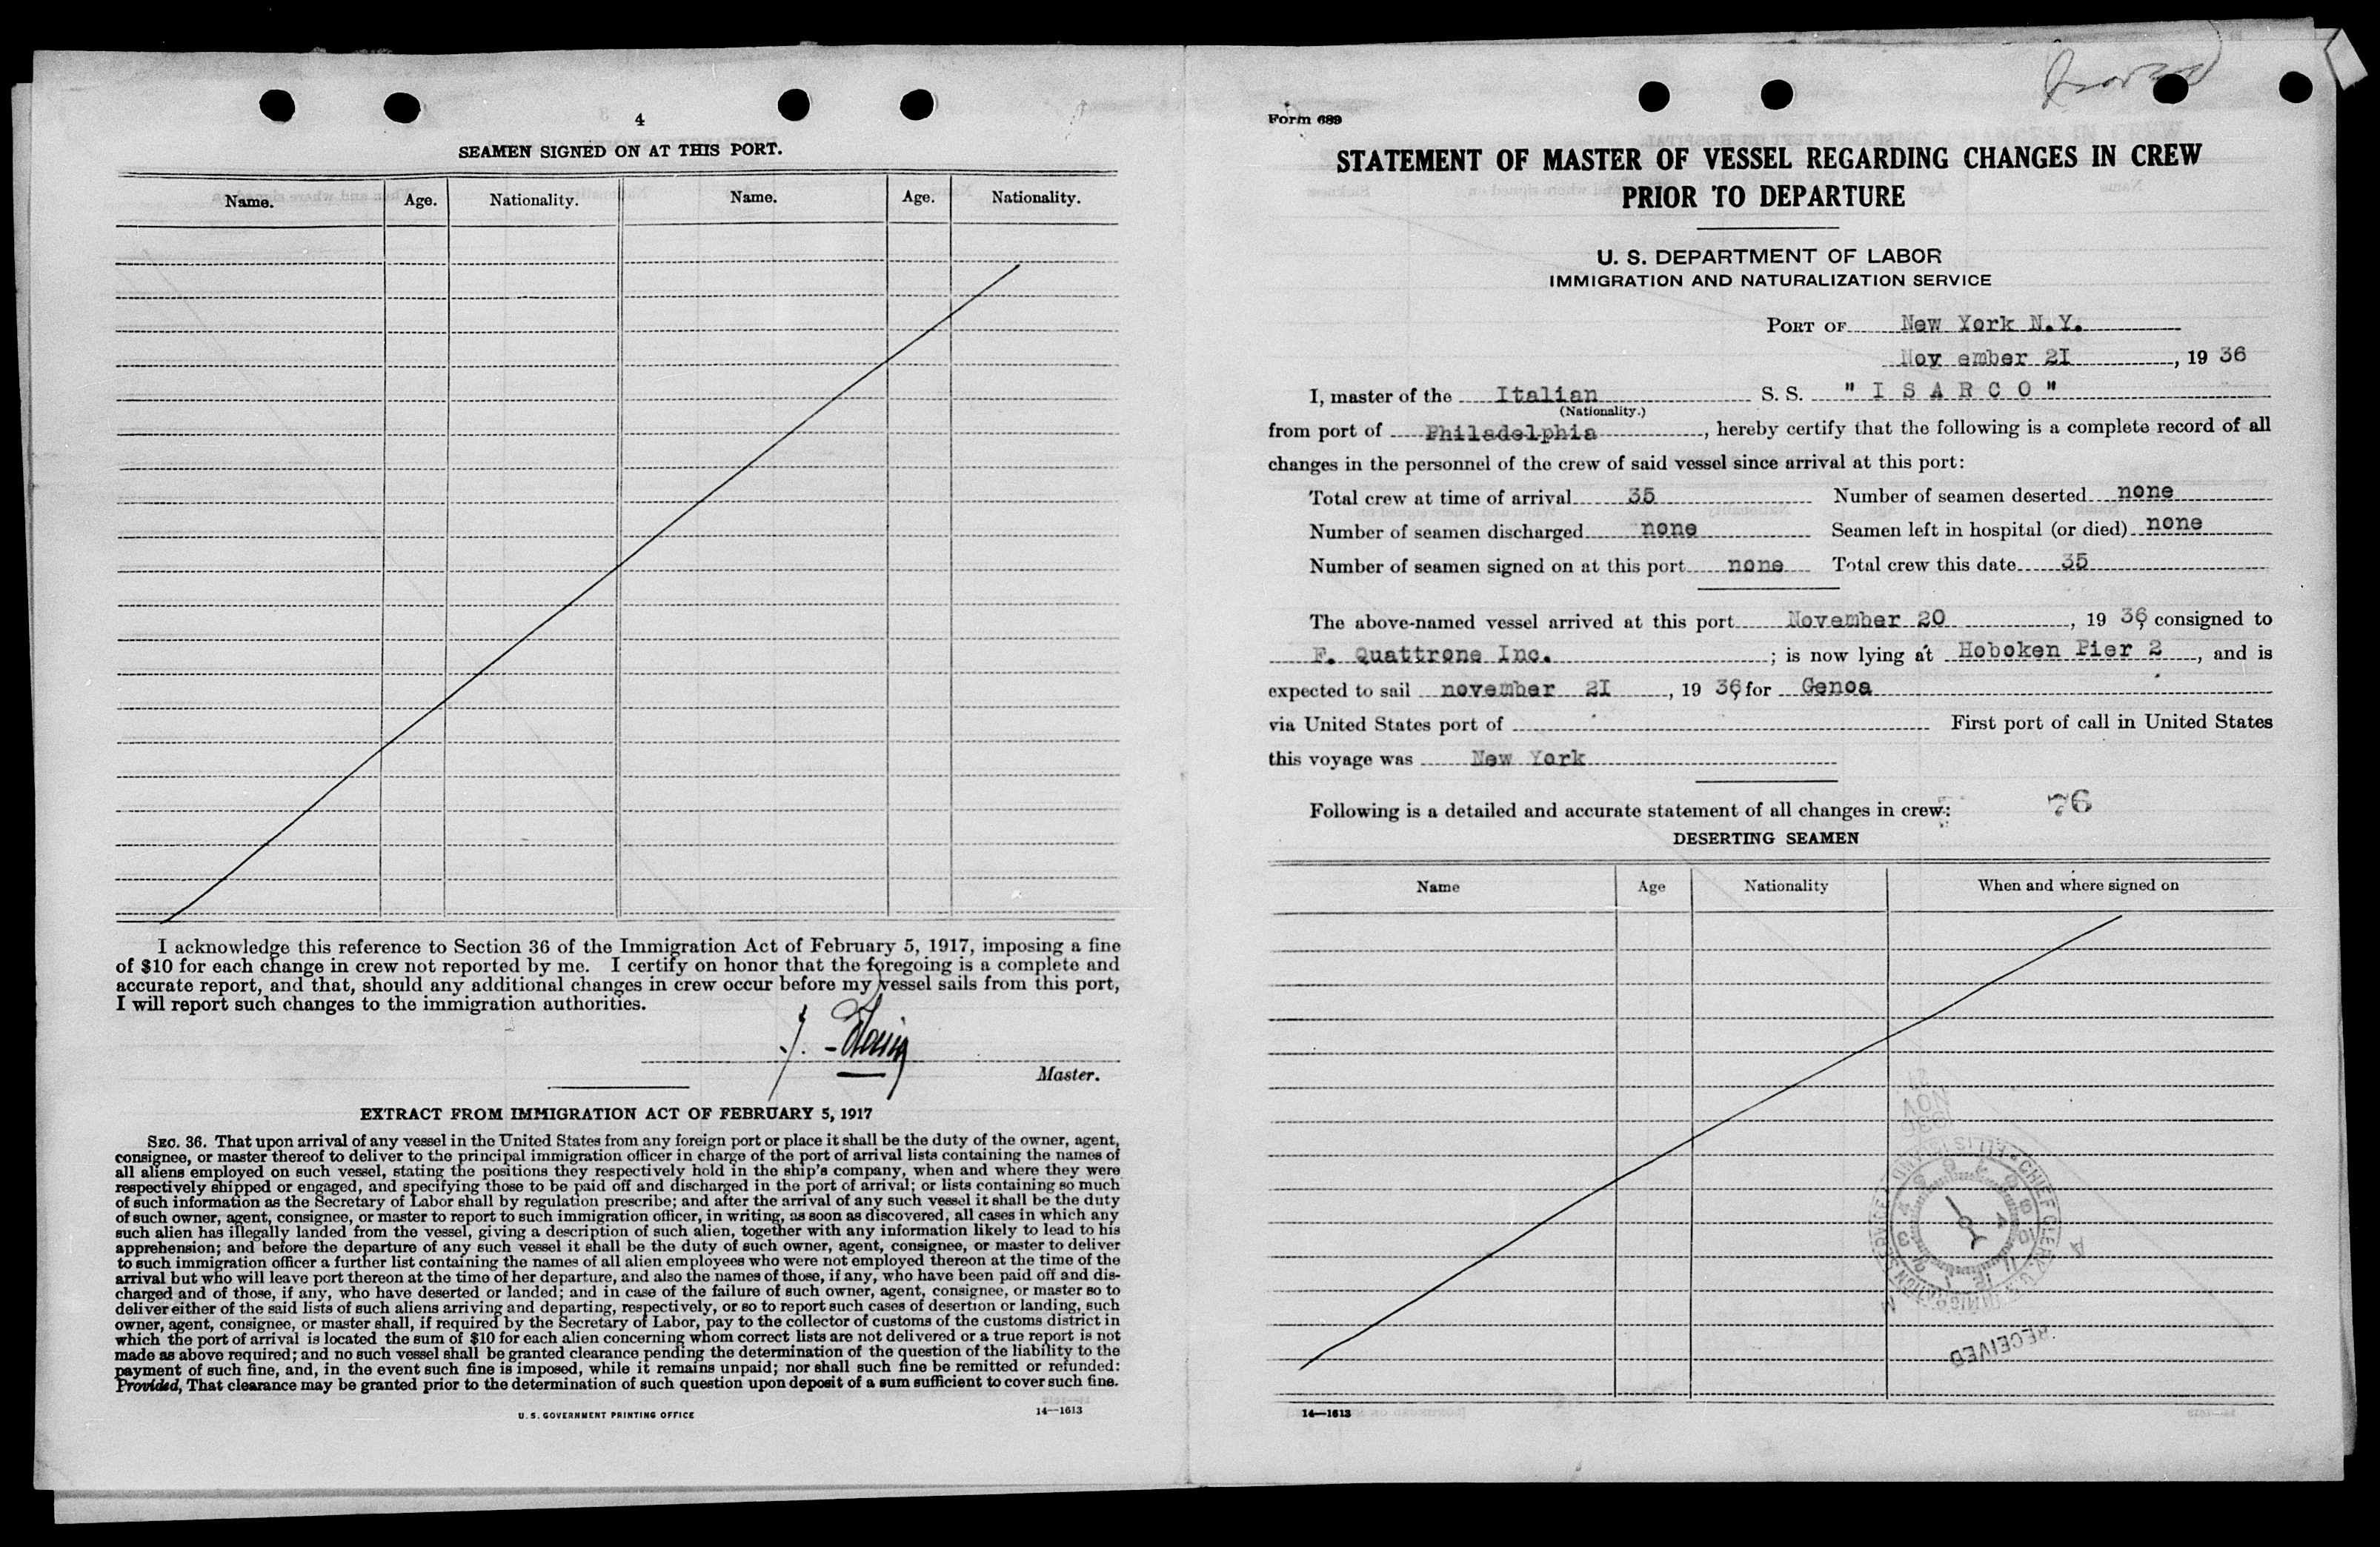 4
SEAMEN SIGNED ON AT THIS PORT.
Name. Age. Nationality. Name. Age. Nationality.
I acknowledge this reference to Section 36 of the Immigration Act of February 5, 1917, imposing a fine
of $10 for each change in crew not reported by me. I certify on honor that the foregoing is a complete and
accurate report, and that, should any additional changes in crew occur before my vessel sails from this port,
I will report such changes to the immigration authorities.
Master.
EXTRACT FROM IMMIGRATION ACT OF FEBRUARY 5, 1917
SEC. 36. That upon arrival of any vessel in the United States from any foreign port or place it shall be the duty of the owner, agent,
consignee, or master thereof to deliver to the principal immigration officer in charge of the port of arrival lists containing the names of
all aliens employed on such vessel, stating the positions they respectively hold in the ship's company, when and where they were
respectively shipped or engaged, and specifying those to be paid off and discharged in the port of arrival; or lists containing so much
of such information as the Secretary of Labor shall by regulation prescribe; and after the arrival of any such vessel it shall be the duty
of such owner, agent, consignee, or master to report to such immigration officer, in writing, as soon as discovered, all cases in which any
such alien has illegally landed from the vessel, giving a description of such alien, together with any information likely to lead to his
apprehension; and before the departure of any such vessel it shall be the duty of such owner, agent, consignee, or master to deliver
to such immigration officer a further list containing the names of all alien employees who were not employed thereon at the time of the
arrival but who will leave port thereon at the time of her departure, and also the names of those, if any, who have been paid off and dis-
charged and of those, if any, who have deserted or landed; and in case of the failure of such owner, agent, consignee, or master so to
deliver either of the said lists of such aliens arriving and departing, respectively, or so to report such cases of desertion or landing, such
owner, agent, consignee, or master shall, if required by the Secretary of Labor, pay to the collector of customs of the customs district in
which the port of arrival is located the sum of $10 for each alien concerning whom correct lists are not delivered or a true report is not
made as above required; and no such vessel shall be granted clearance pending the determination of the question of the liability to the
payment of such fine, and, in the event such fine is imposed, while it remains unpaid; nor shall such fine be remitted or refunded:
Provided, That clearance may be granted prior to the determination of such question upon deposit of a sum sufficient to cover such fine.
U. S. GOVERNMENT PRINTING OFFICE 14—1613
Form 689
STATEMENT OF MASTER OF VESSEL REGARDING CHANGES IN CREW
PRIOR TO DEPARTURE
U. S. DEPARTMENT OF LABOR
IMMIGRATION AND NATURALIZATION SERVICE
PORT OF New York N.Y.
Nov ember 2I, 19 36
I, master of the Italian S. S. " I S A R C O "
(Nationality.)
from port of Philadelphia, hereby certify that the following is a complete record of all
changes in the personnel of the crew of said vessel since arrival at this port:
Total crew at time of arrival 35 Number of seamen deserted none
Number of seamen discharged none Seamen left in hospital (or died) none
Number of seamen signed on at this port none Total crew this date 35
The above-named vessel arrived at this port November 20, 19 36, consigned to
F. Quattrone Inc.; is now lying at Hoboken Pier 2, and is
expected to sail november 2I, 19 36, for Genoa
via United States port of First port of call in United States
this voyage was New York
Following is a detailed and accurate statement of all changes in crew: 76
DESERTING SEAMEN
Name Age Nationality When and where signed on
NOV
1936
CHIEF CLERK, U. S. IMMIGRATION SERVICE ELLIS ISLAND
RECEIVED
14—1613